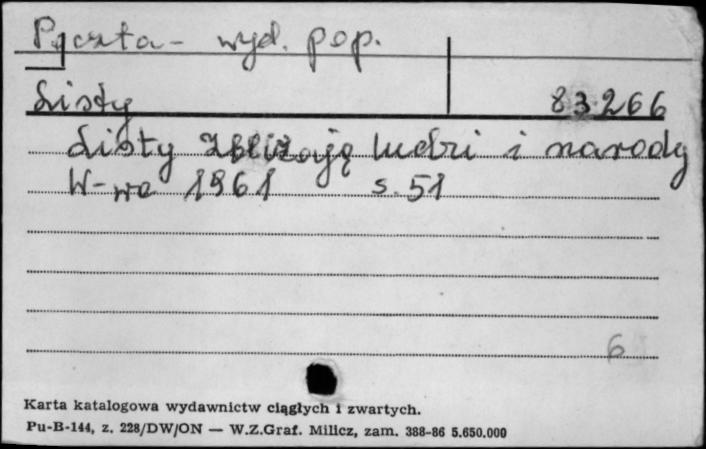 Poczta - wyd. pop.
Listy 83.266
Listy zbliżają ludzi i narody
W-wa 1961 s. 51
6
Karta katalogowa wydawnictw ciągłych i zwartych.
Pu-B-144, z. 228/DW/ON — W.Z.Graf. Milicz, zam. 388-86 5.650.000